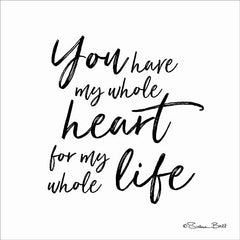 You have
my whole
heart
for my
whole life
©Susan Ball